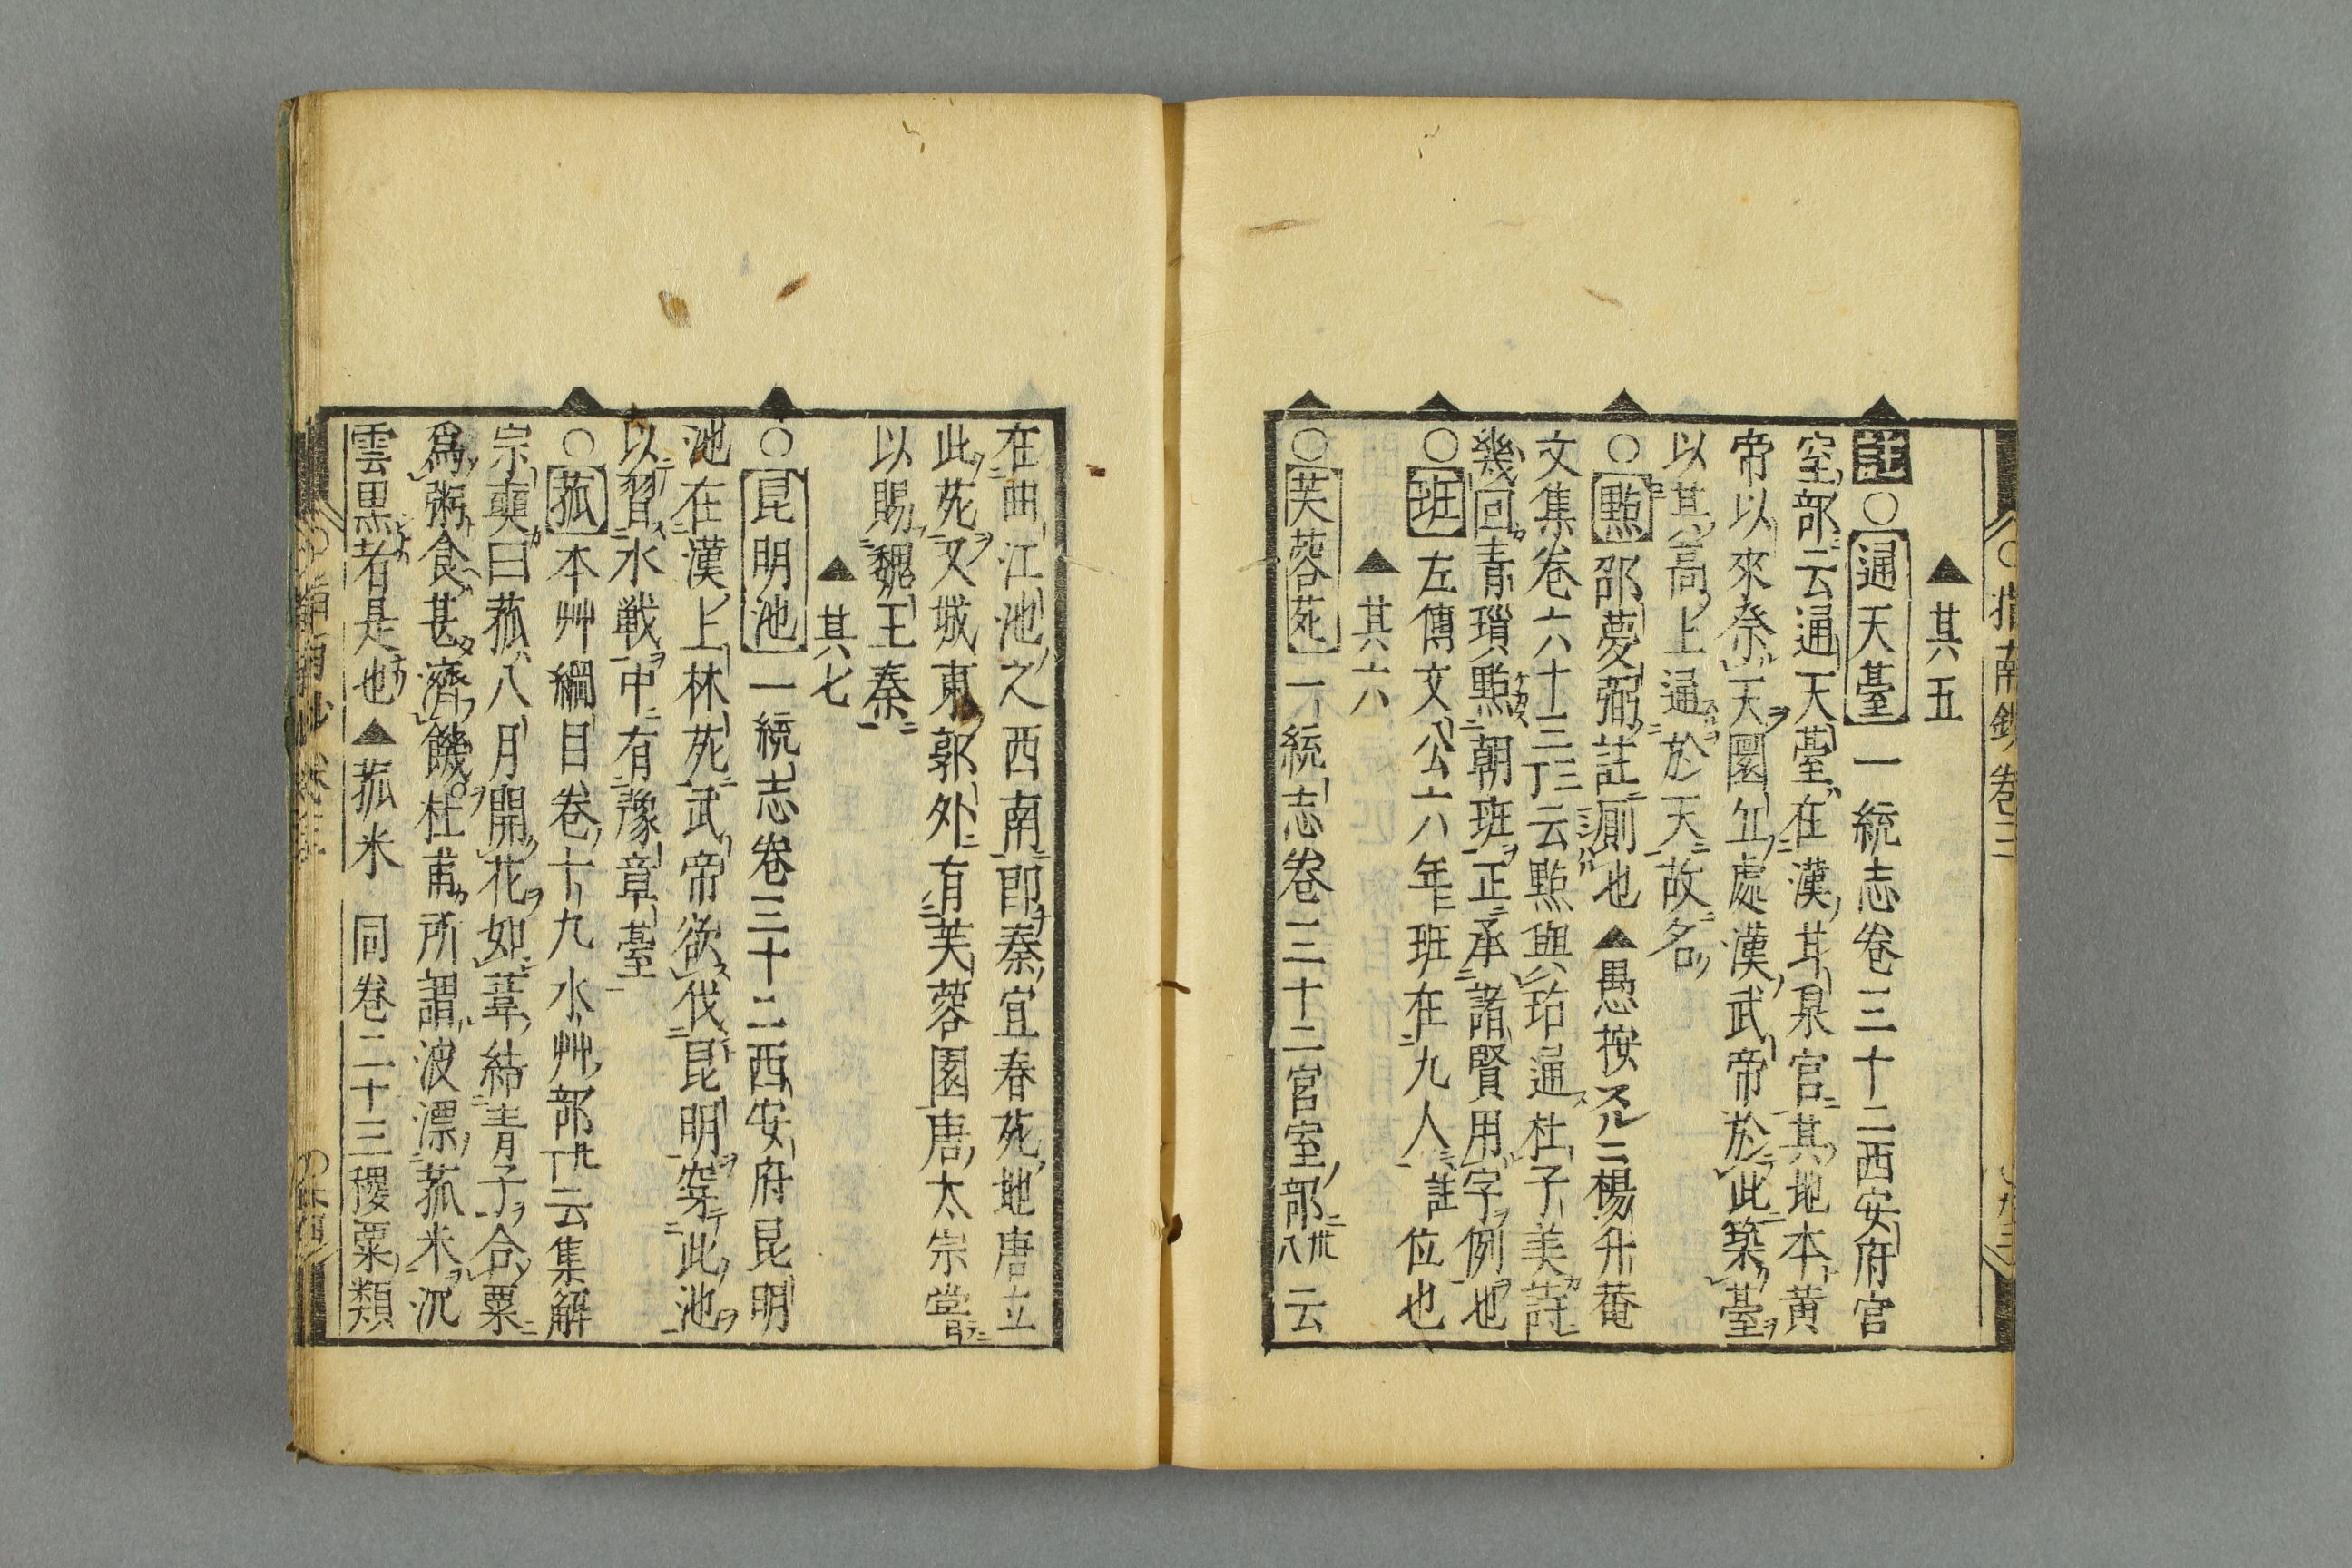 ▲其五
註○通天臺 一統志卷三十二西安府宮
室部云通天臺在漢甘泉宮其地本黄
帝以來祭天圜丘處漢武帝於此築臺
以其高上通於天故名
○點 邵夢弼註厠也▲愚按スルニ楊升菴
文集卷六十三云點與玷通杜子美詩
幾回青瑣點朝班正承諸賢用字例也
○班 左傳文公六年班在九人註位也
▲其六
○芙蓉苑 一統志卷三十二宮室部卅八云
在曲江池之西南即秦宜春苑地唐立
此苑又城東郭外有芙蓉園唐太宗嘗
以賜魏王泰
▲其七
○昆明池 一統志卷三十二西安府昆明
池在漢上林苑武帝欲伐昆明穿此池
以習水戦中有豫章臺
○菰 本艸綱目卷十九水艸部云集解
宗奭曰菰八月開花如葦結青子合粟
爲粥食甚濟饑杜甫所謂波漂菰米沉
雲黒者是也▲菰米 同卷二十三稷粟類